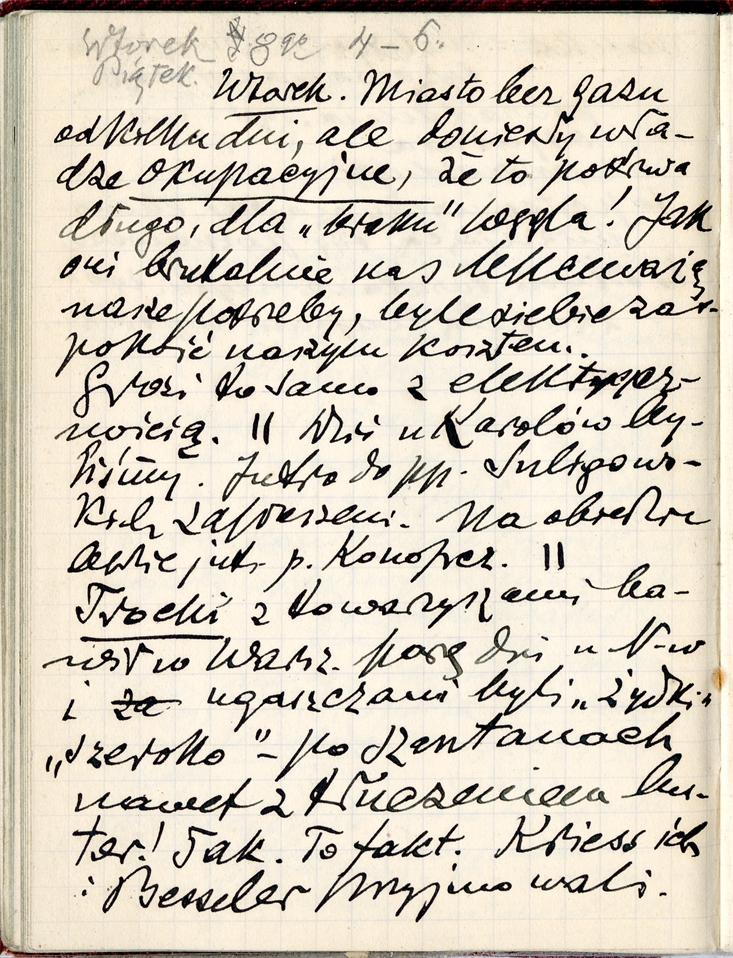 Wtorek 8 go 4 – 6.
Piątek.
Wtorek. Miasto bez gazu
od kilku dni, ale doniosły wła-
dze okupacyjne, że to potrwa
długo, dla „braku" węgla! Jak
oni brutalnie nas lekceważą
nasze potrzeby, byle siebie zas-
pokoić naszym kosztem.
Grozi to samo z elektrycz-
nością. || Dziś u Karolów by-
liśmy. Jutro do pp. Suligows-
kich zaproszeni. Na obiedzie
będzie jutr. p. Konopcz. ||
Trocki z towarzyszami ba-
wił w Warsz. parę dni u N-w
i za ugaszczani byli „żydki"
„szeroko" – po
nawet z tłuczeniem lus-
ter! Tak. To fakt. Kriess ich
i Besseler przyjmowali.